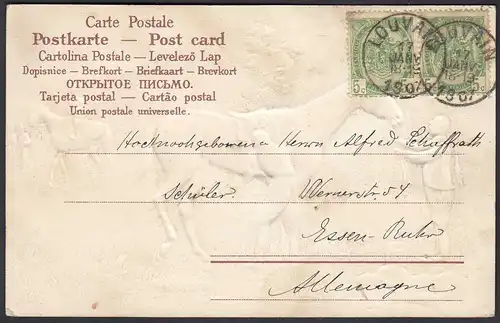 Carte Postale
Postkarte — Post card
Cartolina Postale — Levelező Lap
Dopisnice — Brefkort — Briefkaart — Brevkort
ОТКРЫТОЕ ПИСЬМО.
Tarjeta postal — Cartão postal
Union postale universelle.
LOUVAIN
17
JANV
1907
LOUVAIN
17
JANV
1907
5c
Hochwohgeborenen Herrn Alfred Schaffrath
Schüler. Wernerstr. 54
Essen-Ruhr
Allemagne